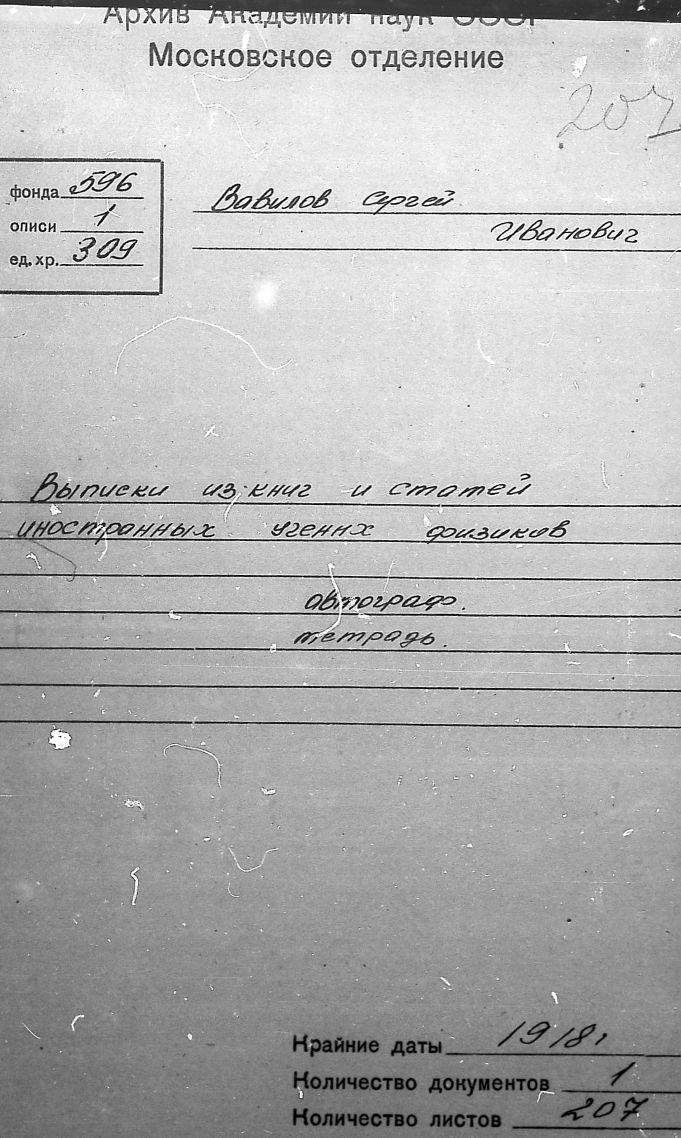 Архив Академии наук СССР
Московское отделение
207
фонда 596
описи 1
ед. хр. 309
Вавилов Сергей
Иванович
Выписки из книг и статей
иностранных ученнх физиков
автограф.
тетрадь.
Крайние даты 1918г
Количество документов 1
Количество листов 207